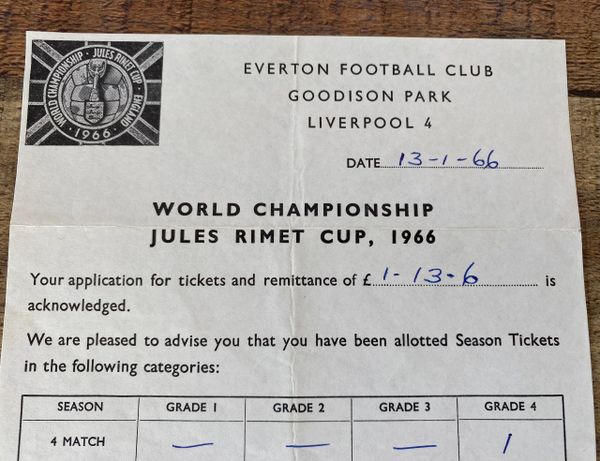 WORLD CHAMPIONSHIP · JULES RIMET CUP · ENGLAND
· 1966 ·
EVERTON FOOTBALL CLUB
GOODISON PARK
LIVERPOOL 4
DATE 13-1-66
WORLD CHAMPIONSHIP
JULES RIMET CUP, 1966
Your application for tickets and remittance of £ 1-13-6 is
acknowledged.
We are pleased to advise you that you have been allotted Season Tickets
in the following categories:
SEASON GRADE 1 GRADE 2 GRADE 3 GRADE 4
4 MATCH — — — 1